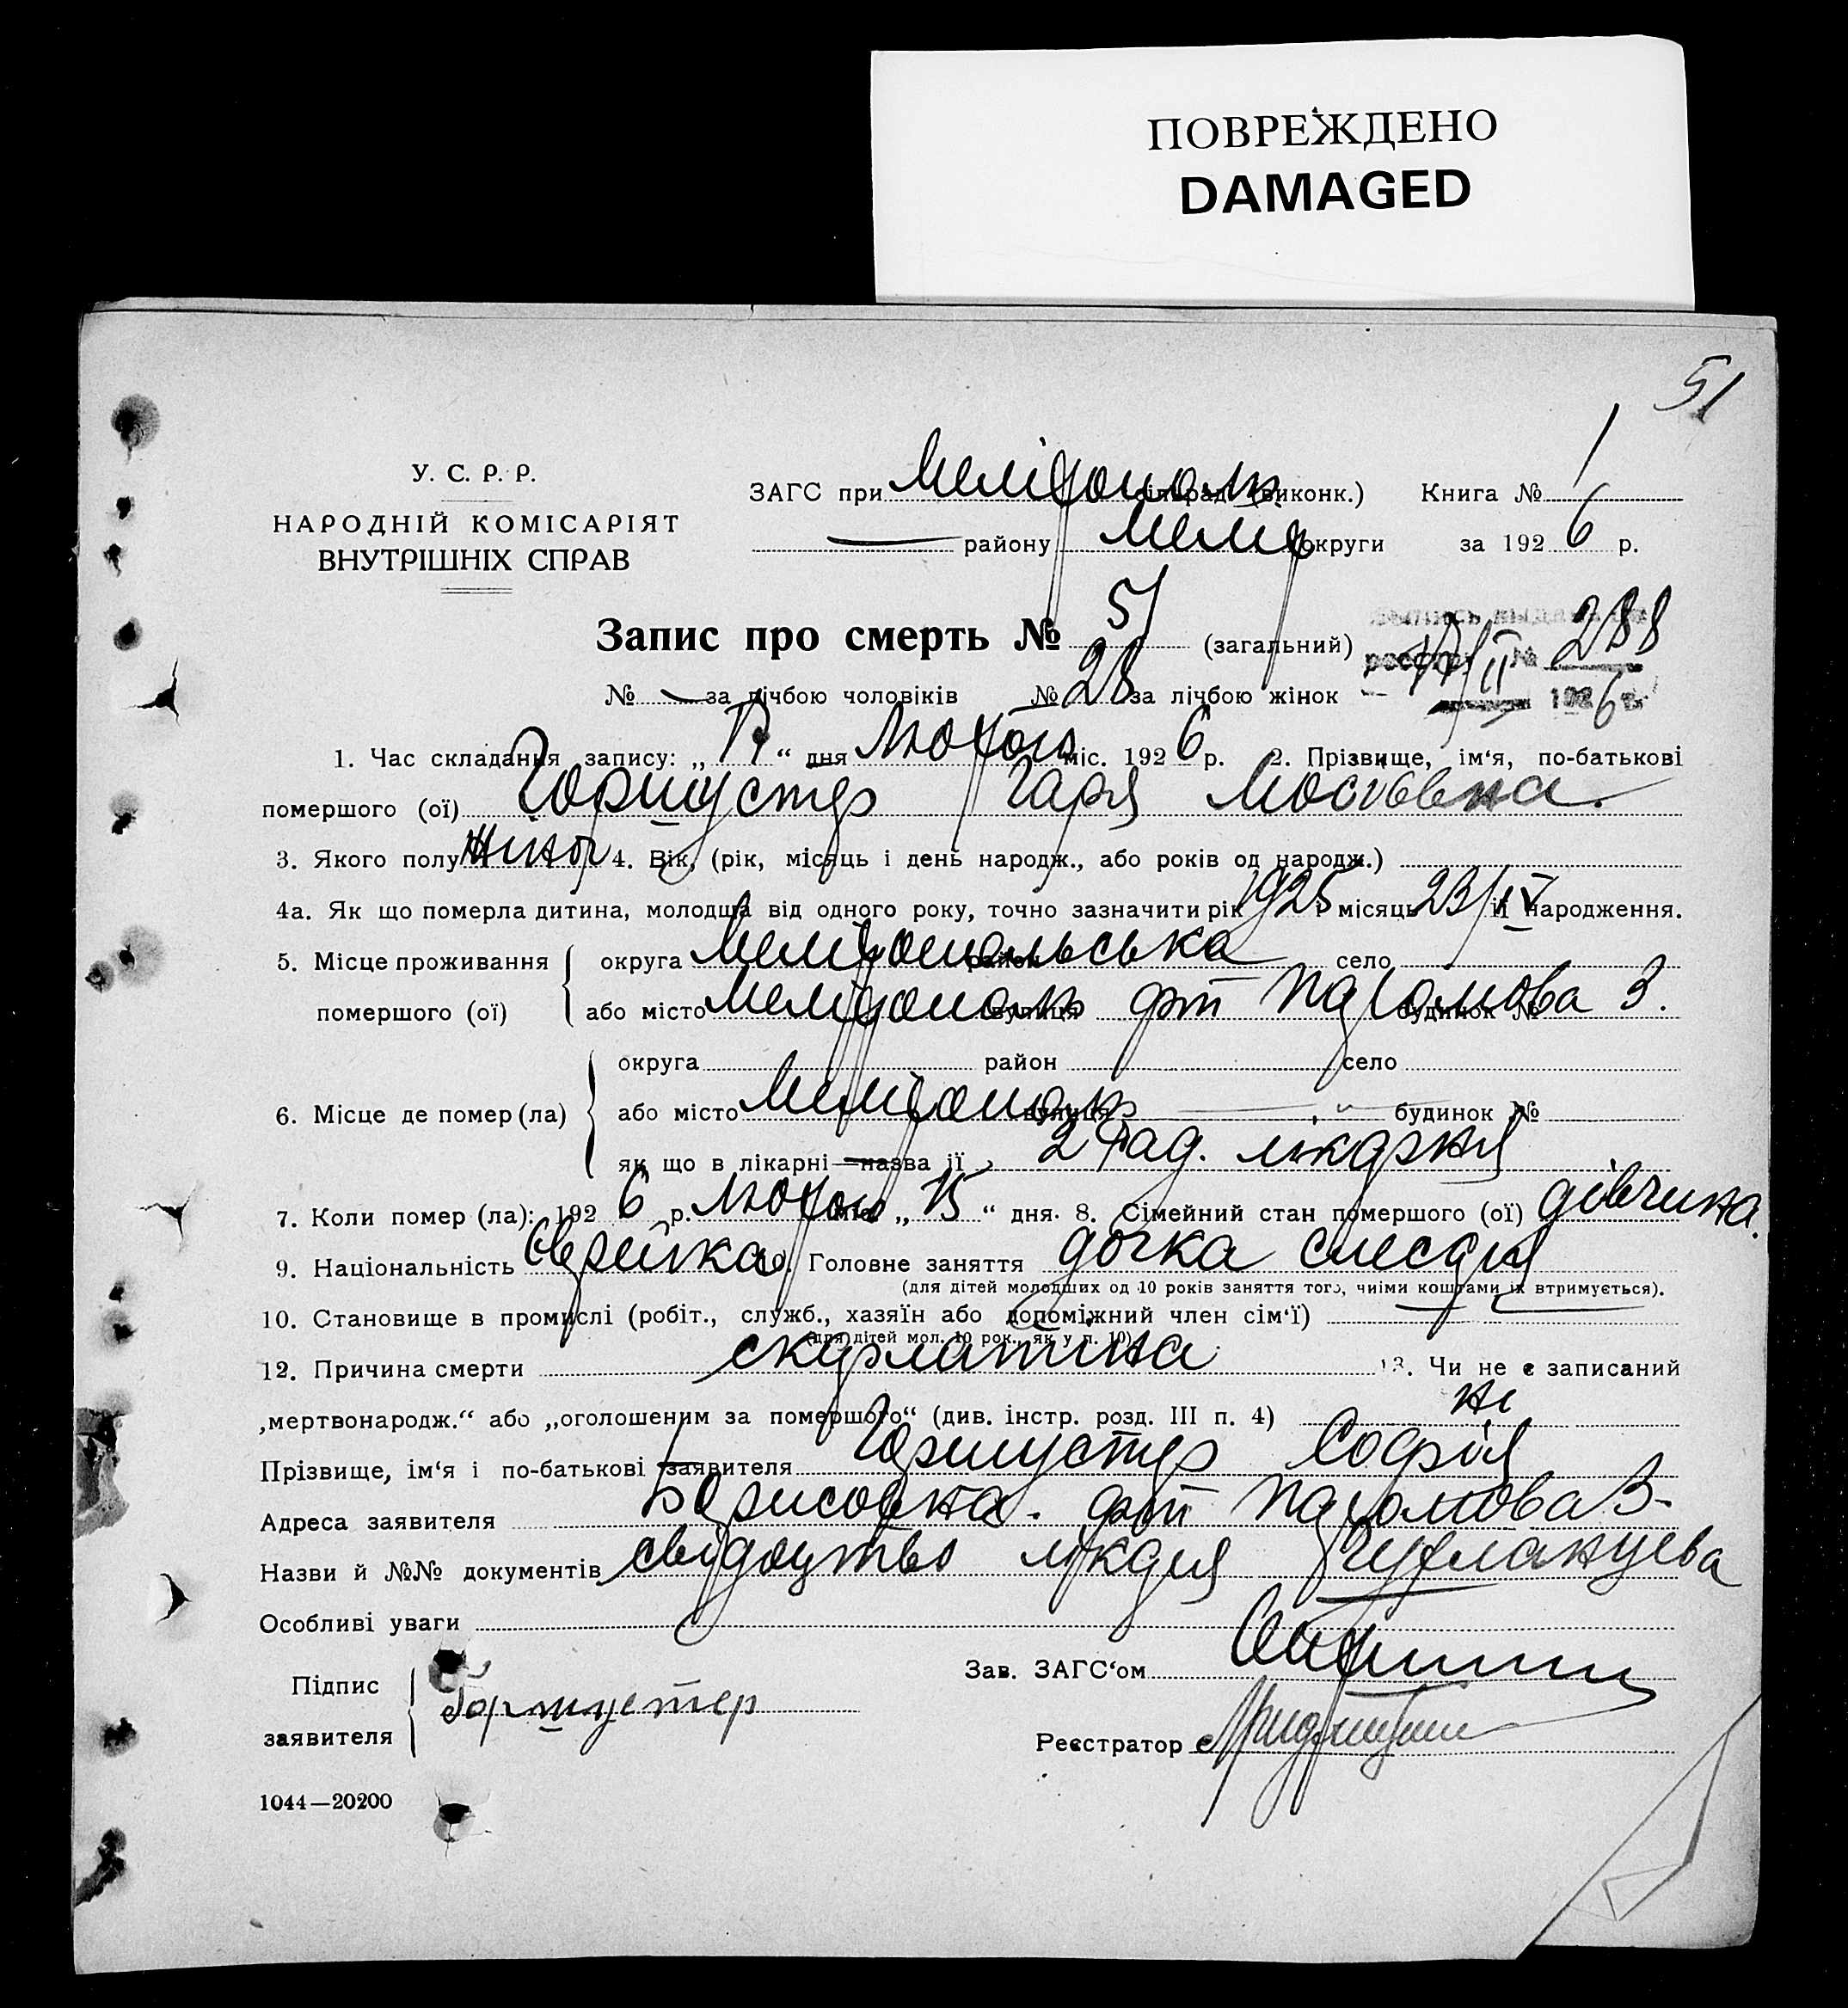 ПОВРЕЖДЕНО
DAMAGED
51
У. С. Р. Р.
НАРОДНІЙ КОМІСАРІЯТ
ВНУТРІШНІХ СПРАВ
ЗАГС при Мелітополь (виконк.) Книга № 1
— району Меліт округи за 1926 р.
Запис про смерть № 51 (загальний) № 288
№ — за лічбою чоловіків № 28 за лічбою жінок II 1926 г.
1. Час складання запису: „ “ дня Лютого міс. 1926 р. 2. Прізвище, ім‘я, по-батькові
помершого (ої) Горшустер
3. Якого полу жіноч 4. Вік, (рік, місяць і день народж., або років од народж.)
4а. Як що померла дитина, молодща від одного року, точно зазначити рік 1925 місяць 23/IV народження.
5. Місце проживання округа Мелітопольська район село
помершого (ої) або місто Мелітополь вулиця будинок № 3.
округа район село
6. Місце де помер (ла) або місто Мелітополь вулиця — будинок №
як що в лікарні — назва її 2 Рад. лікарня
7. Коли помер (ла): 1926 р. Лютого міс. „15“ дня. 8. Сімейний стан помершого (ої) дівчина.
9. Національність Єврейка Головне заняття дочка слесаря
(для дітей молодщих од 10 років заняття того, чиїми коштами їх втримується).
10. Становище в промислі (робіт., служб., хазяїн або допоміжний член сім‘ї)
(для дітей мол. 10 рок., як у п. 10)
12. Причина смерти скарлатина 13. Чи не є записаний
„мертвонародж.“ або „оголошеним за помершого“ (див. інстр. розд. III п. 4) ні
Прізвище, ім‘я і по-батькові заявителя Горшустер Софія
Адреса заявителя Борисовна. 3.
Назви й №№ документів свідоцтво лікаря
Особливі уваги
Підпис
заявителя Горшустер
Зав. ЗАГС‘ом
Реєстратор
1044—20200